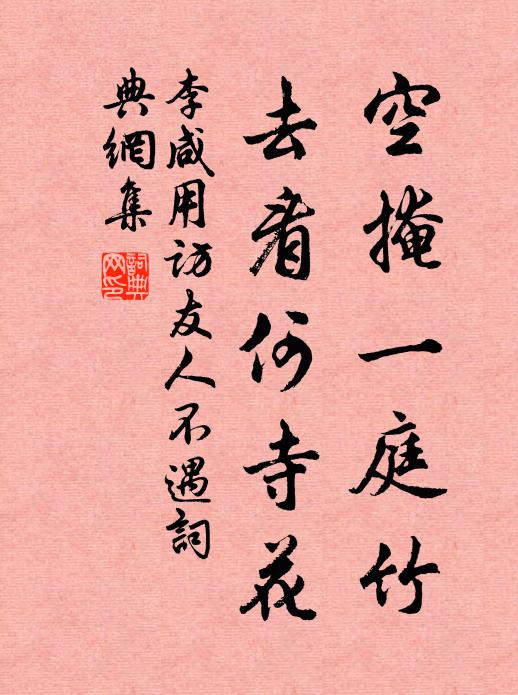 空掩一庭竹
去看何寺花
李咸用訪友人不遇詞
典網集
詞典
网印